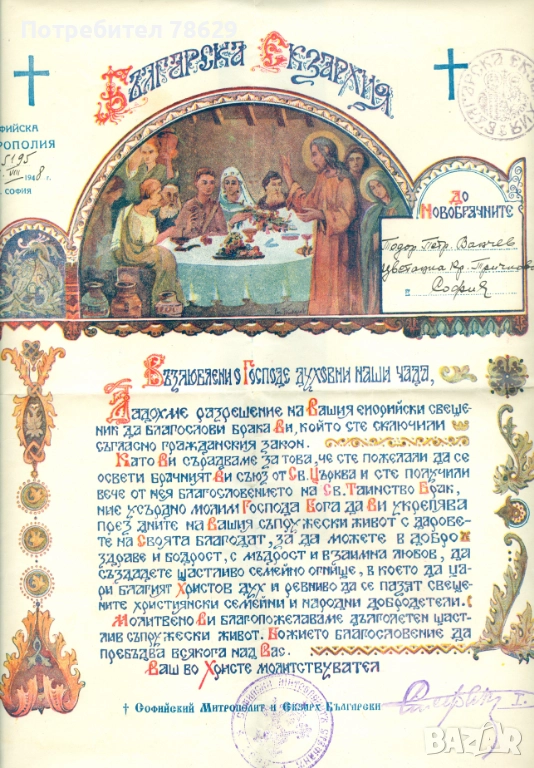 Потребител 78629
Българска Екзархия
ФИЙСКА
РОПОЛИЯ
5195
VIII 1948 г.
СОФИЯ
До
Новобрачните
Тодор Петр. Ванчев
Цветанка Кр.
в София
Възлюблени о Господе духовни наши чада,
Дадохме разрешение на Вашия енорийски свеще-
ник да благослови брака Ви, който сте сключили
съгласно гражданския закон.
Като Ви сърадваме за това, че сте пожелали да се
освети брачният Ви съюз от Св. Църква и сте получили
вече от нея благословението на Св. Таинство Брак,
ние усърдно молим Господа Бога да Ви укрепява
през дните на Вашия съпружески живот с дарове-
те на Своята благодат, за да можете в добро
здраве и бодрост, с мъдрост и взаимна любов, да
създадете щастливо семейно огнище, в което да ца-
ри благият Христов дух и ревниво да се пазят свеще-
ните християнски семейни и народни добродетели.
Молитвено Ви благопожелаваме дълголетен щаст-
лив съпружески живот. Божието благословение да
пребъдва всякога над Вас.
Ваш во Христе молитствувател
† Софийский Митрополит и Екзарх Български
bazar